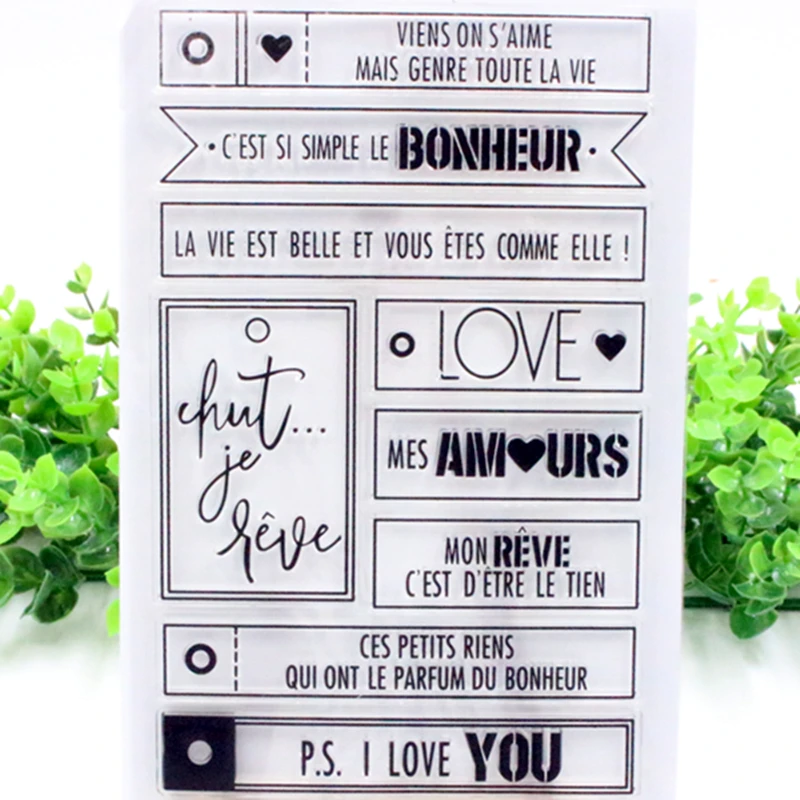 VIENS ON S'AIME
MAIS GENRE TOUTE LA VIE
• C'EST SI SIMPLE LE BONHEUR •
LA VIE EST BELLE ET VOUS ÊTES COMME ELLE !
chut...
je
rêve
LOVE
MES AM♥URS
MON RÊVE
C'EST D'ÊTRE LE TIEN
CES PETITS RIENS
QUI ONT LE PARFUM DU BONHEUR
P.S. I LOVE YOU